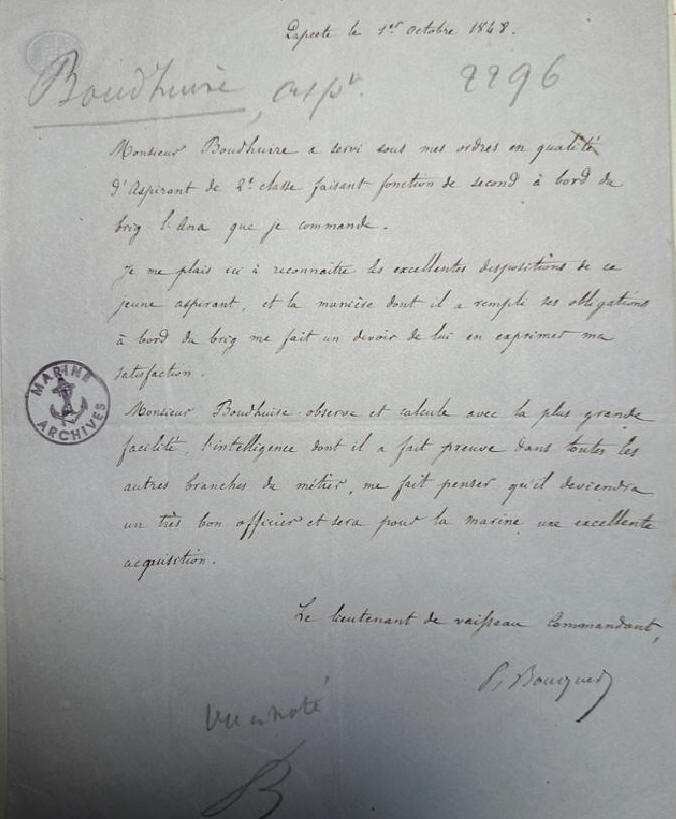 Papeete le 1er Octobre 1848.
Boudhuire, aspt. 2296
Monsieur Boudhuire a servi sous mes ordres en qualité
d'Aspirant de 2e classe faisant fonction de second à bord du
brig l'Ana que je commande.
Je me plais ici à reconnaitre les excellentes dispositions de ce
jeune aspirant, et la manière dont il a rempli ses obligations
à bord du brig me fait un devoir de lui en exprimer ma
satisfaction.
MARINE
ARCHIVES
Monsieur Boudhuire observe et calcule avec la plus grande
facilité, l'intelligence dont il a fait preuve dans toutes les
autres branches du métier, me fait penser qu'il deviendra
un très bon officier et sera pour la marine une excellente
acquisition.
Le lieutenant de vaisseau Commandant,
Vu et noté
B